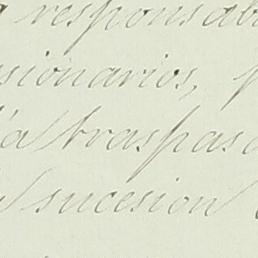 responsab
sionarios,
a traspas
sucesion